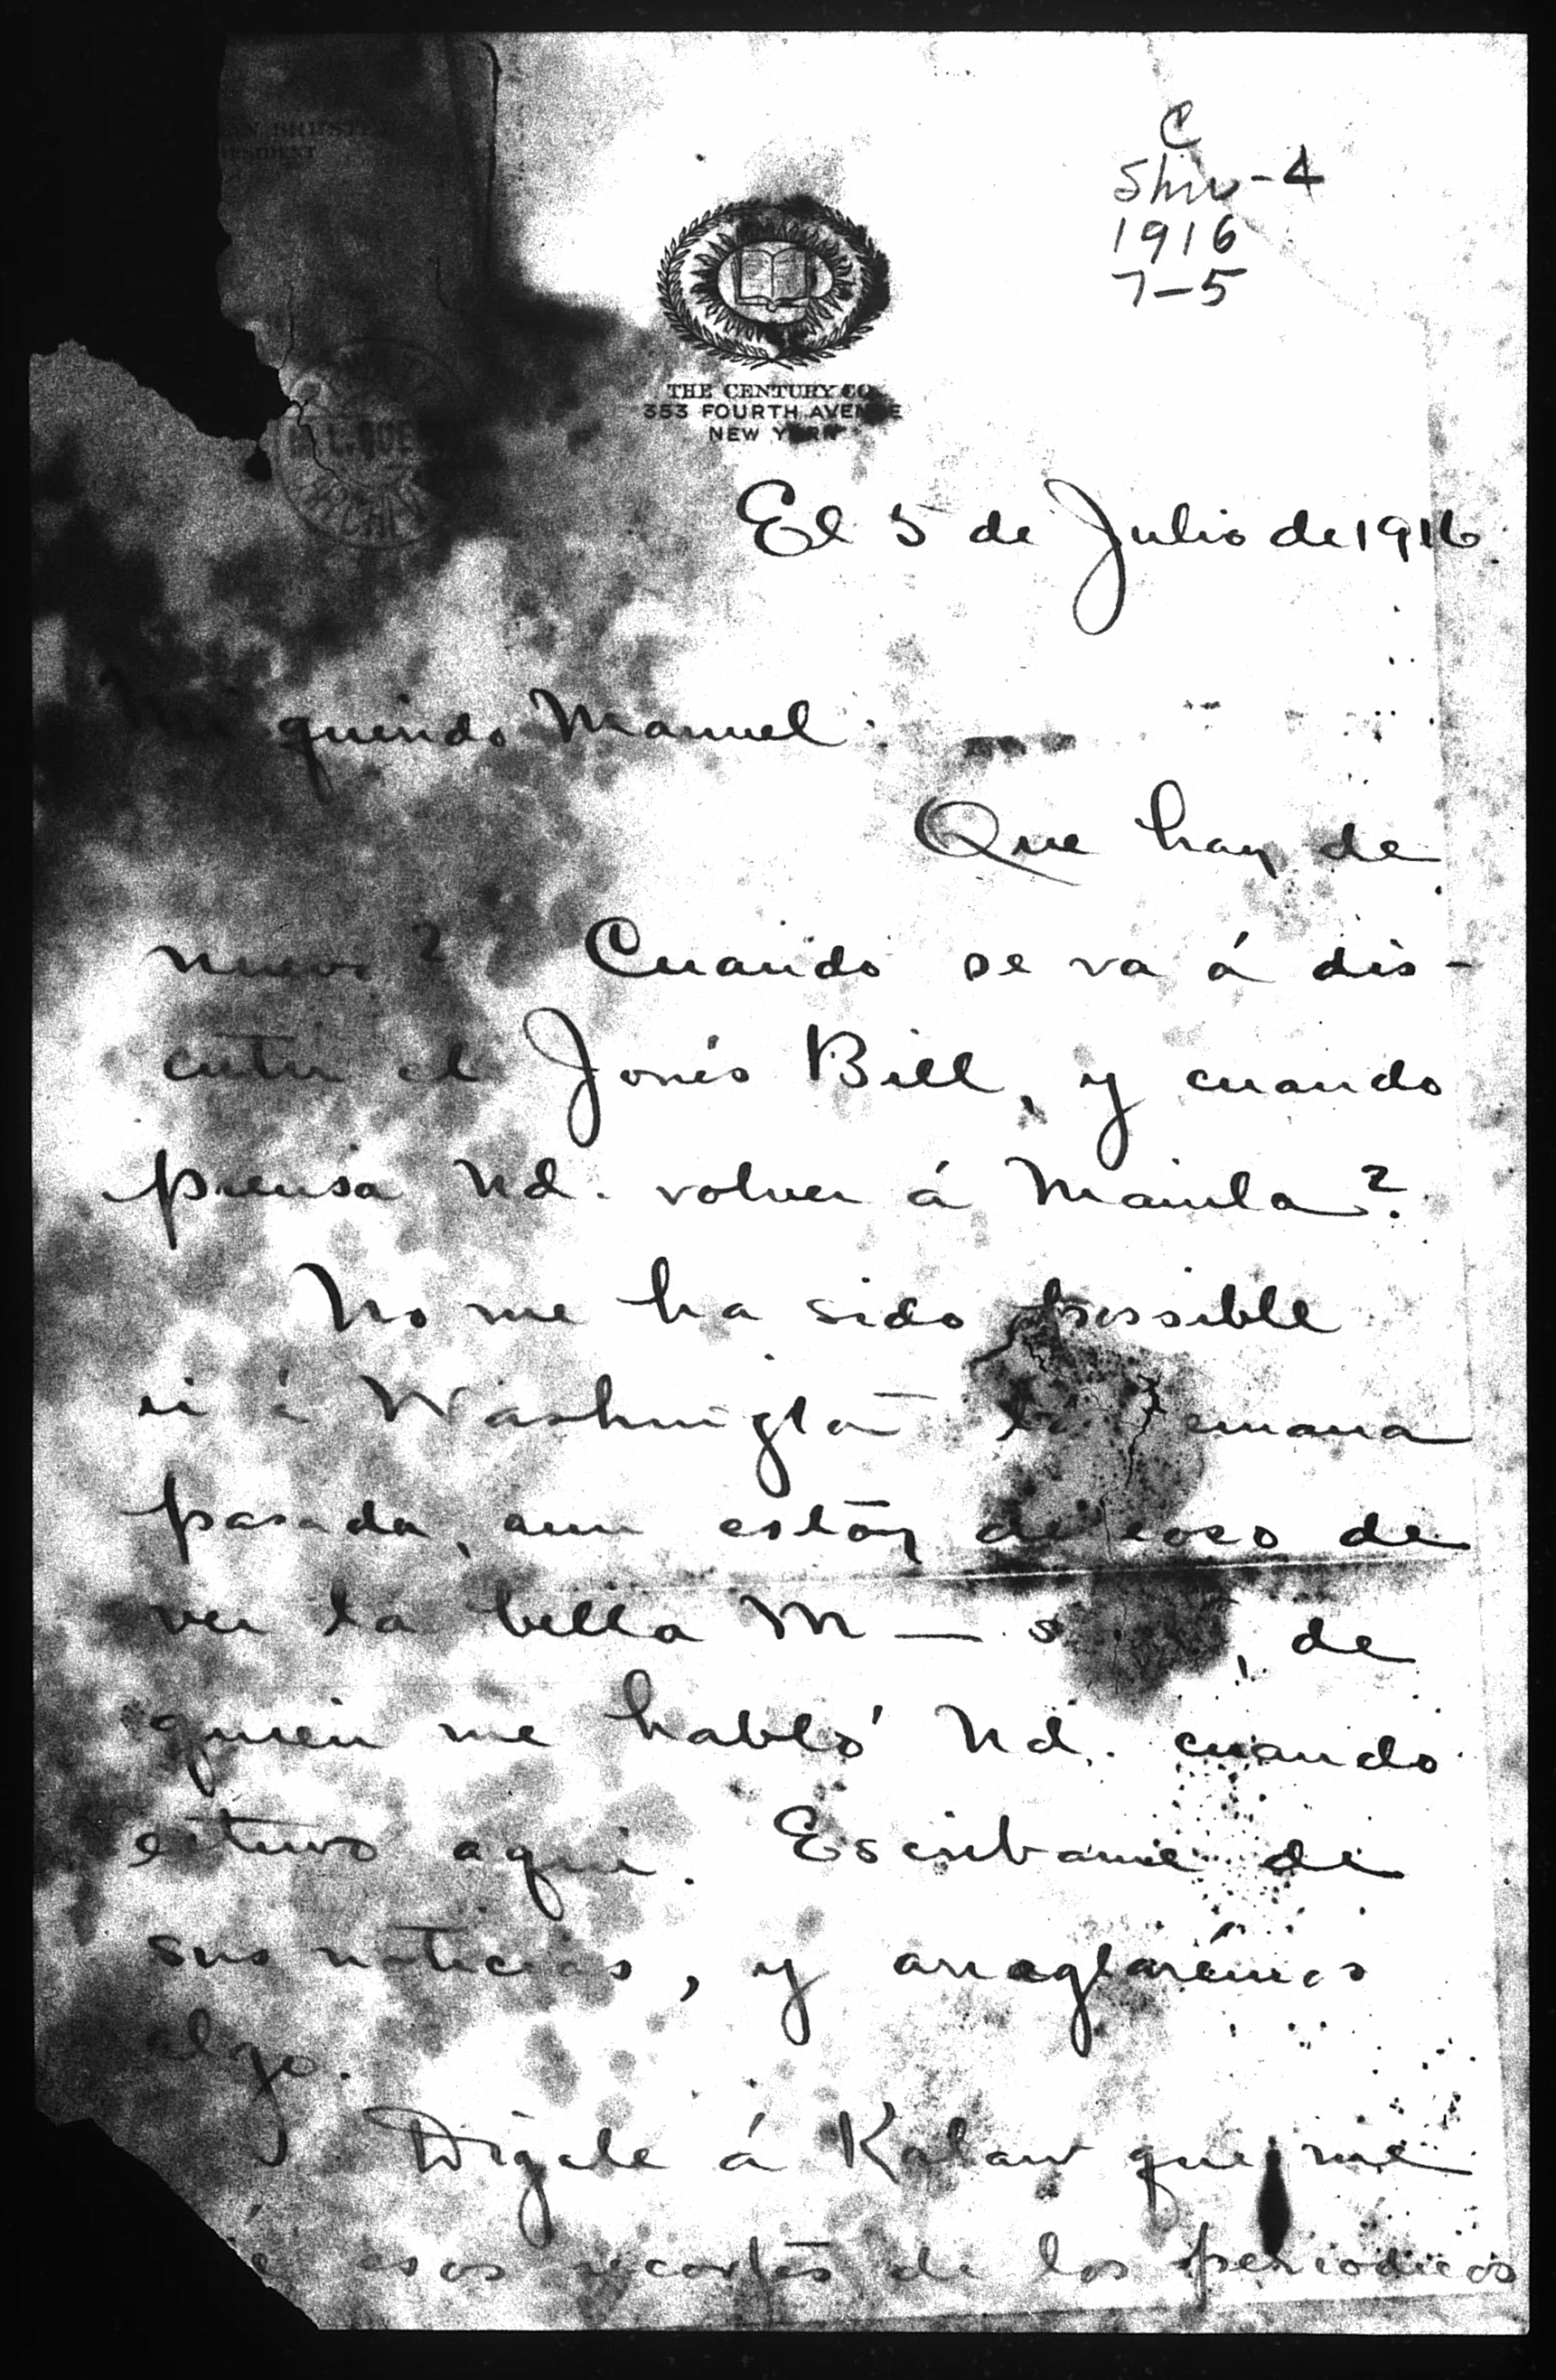 C
Shu-4
1916
7-5
THE CENTURY CO
353 FOURTH AVENUE
NEW YORK
El 5 de Julio de 1916.
Mi querido Manuel:
Que hay de
nuevo? Cuando se va á dis-
cutir el Jones Bill, y cuando
piensa Ud. volver á Manila?
No me ha sido possible
ir á Washington la semana
pasada, aun estoy deseoso de
ver la bella M — s , de
quien me habló Ud. cuando
estuvo aqui. Escribame de
sus noticias, y arreglarémos
algo.
Digale á Kalaw que me
esos recortes de los periodicos